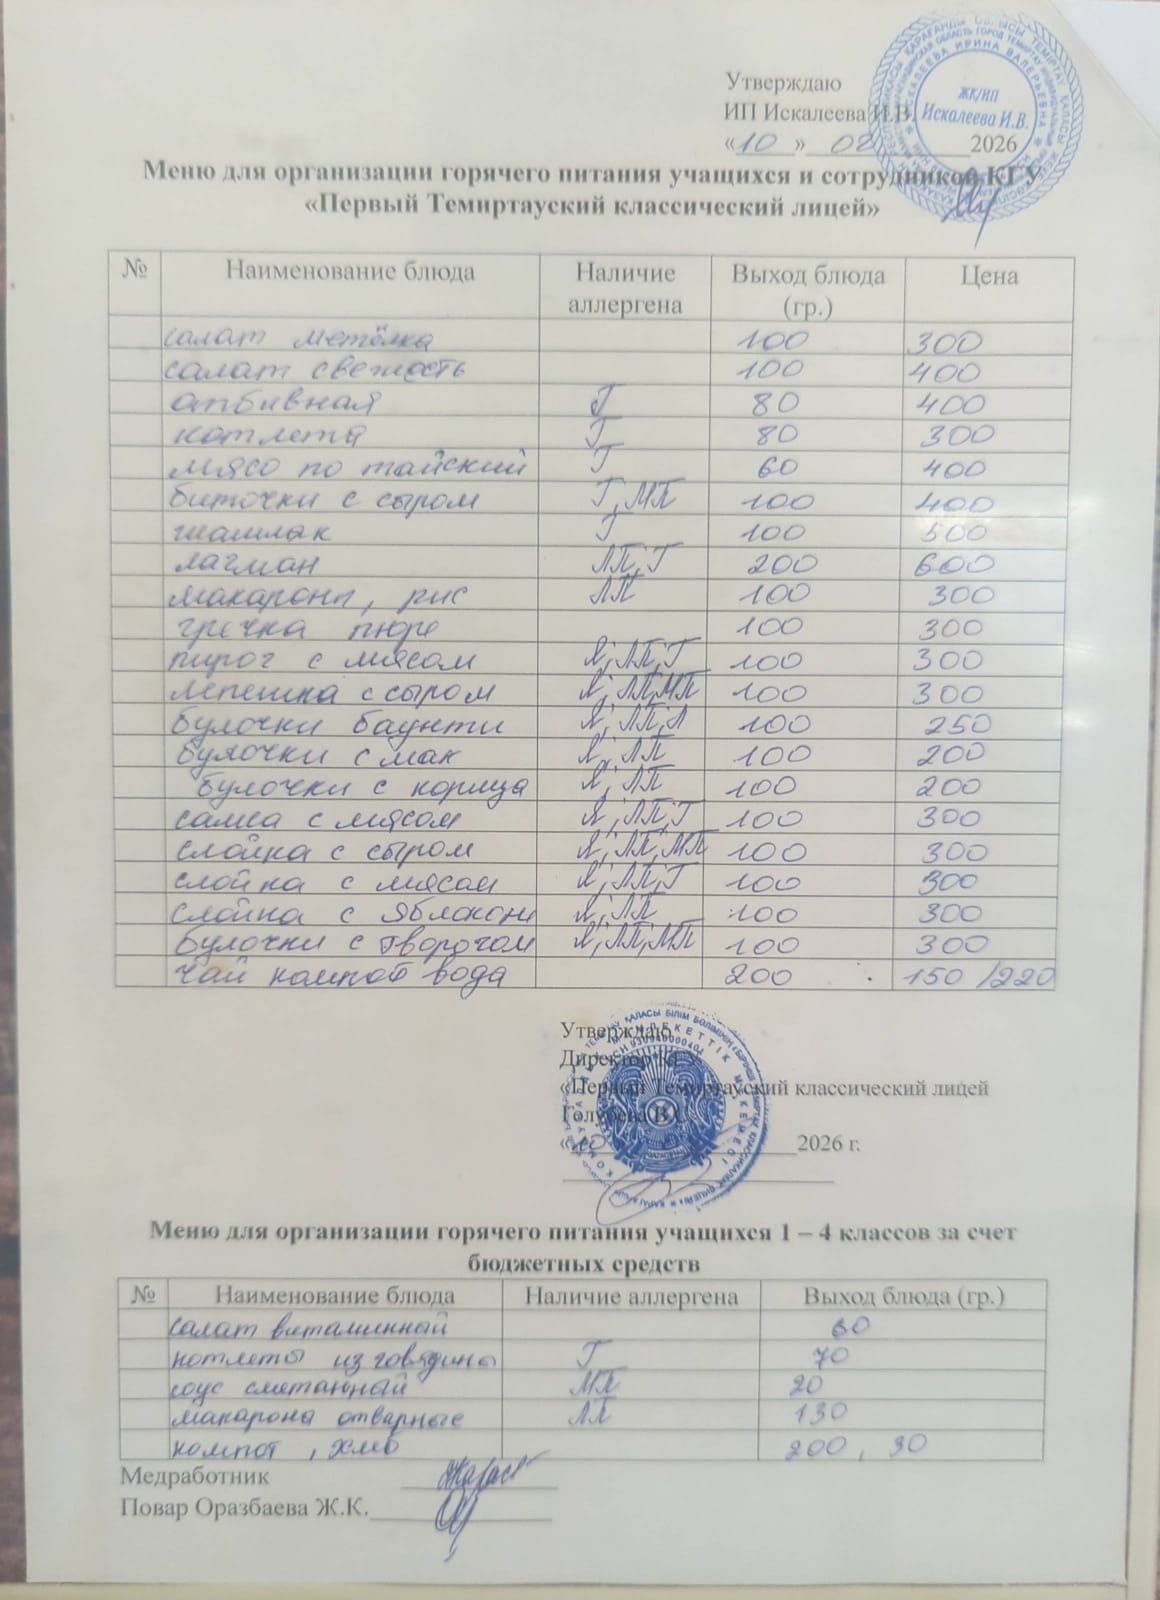 Утверждаю
ИП Искалеева И.В.
«10» 02 2026
ЖК/ИП
Искалеева И.В.
Меню для организации горячего питания учащихся и сотрудников КГУ
«Первый Темиртауский классический лицей»
№ Наименование блюда Наличие аллергена Выход блюда (гр.) Цена
салат метёлка 100 300
салат свежесть 100 400
отбивная Г 80 400
котлета Г 80 300
мясо по тайский Г 60 400
биточки с сыром Г, МП 100 400
шашлак Г 100 500
лагман ЛП, Г 200 600
макароны, рис ЛП 100 300
гречка пюре 100 300
пирог с мясом Я, ЛП, Г 100 300
лепешка с сыром Я, ЛП, МП 100 300
булочки баунти Я, ЛП, Л 100 250
булочки с мак Я, ЛП 100 200
булочки с корица Я, ЛП 100 200
самса с мясом Я, ЛП, Г 100 300
слойка с сыром Я, ЛП, МП 100 300
слойка с мясом Я, ЛП, Г 100 300
слойка с яблоком Я, ЛП 100 300
булочки с творогом Я, ЛП, МП 100 300
чай компот вода 200 150/220
Утверждаю
Директор КГУ
«Первый Темиртауский классический лицей
Голубева В.С.
«10 2026 г.
Меню для организации горячего питания учащихся 1 – 4 классов за счет
бюджетных средств
№ Наименование блюда Наличие аллергена Выход блюда (гр.)
салат витаминный 60
котлеты из говядины Г 70
соус сметанный МП 20
макарона отварные ЛП 130
компот, хлеб 200, 30
Медработник
Повар Оразбаева Ж.К.